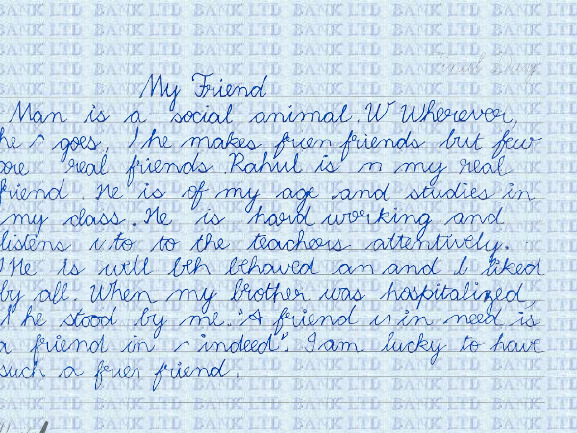 My Friend
Man is a social animal. W Wherever,
he goes, he makes frien friends but few
are real friends. Rahul is n my real
friend. He is of my age and studies in
my class. He is hard working and
listens to to the teachers attentively.
He is well beh behaved an and l liked
by all. When my brother was hospitalized,
he stood by me. "A friend in need is
a friend in indeed". I am lucky to have
such a friend.
BANK LTD